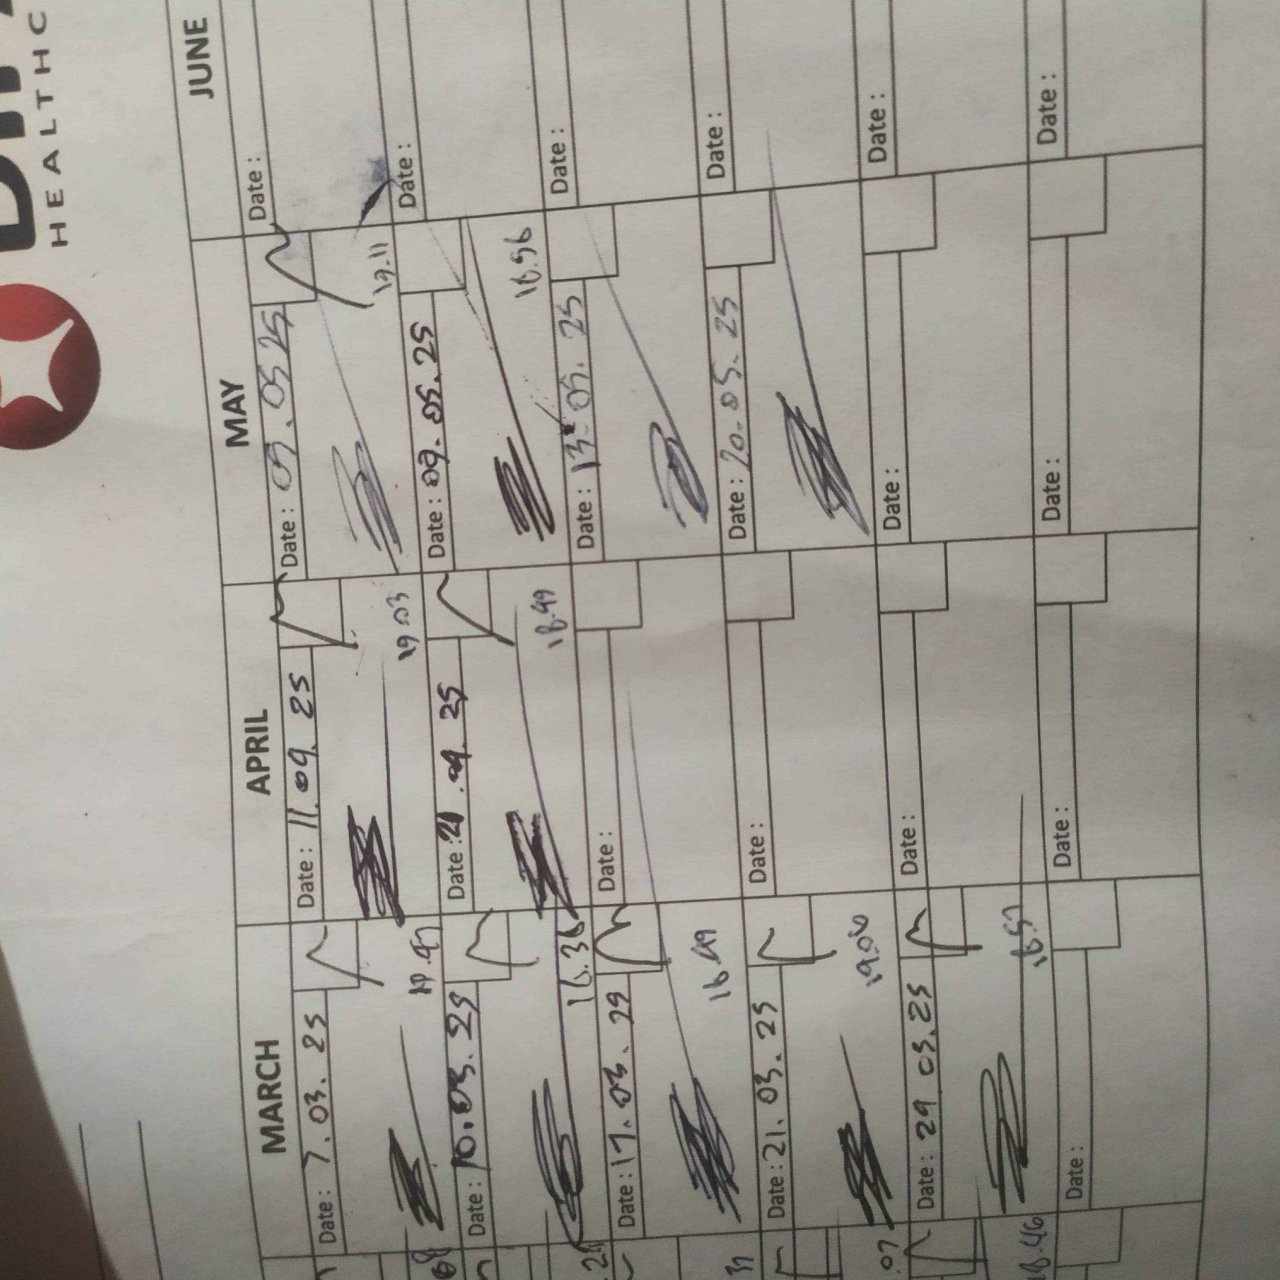 HEALTHC
MARCH
APRIL
MAY
JUNE
Date: 7.03.25
Date: 11.04.25
Date: 07.05 25
Date:
19.03
19.11
Date: 10.03.25
Date: 21.04.25
Date: 09.05.25
Date:
18.36
18.49
18.56
Date: 17.03.29
Date:
Date: 13.05.25
Date:
18.49
Date: 21.03.25
Date:
Date: 20.05.25
Date:
19.06
Date: 29 03.25
Date:
Date:
Date:
18.46
18.57
Date:
Date:
Date:
Date: